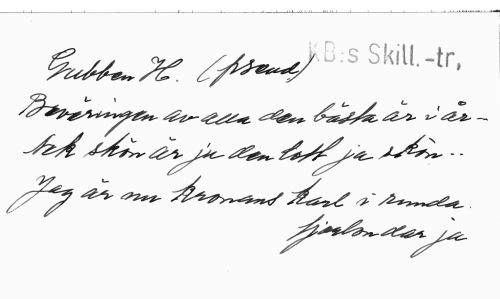 Gubben H. (pseud)
KB:s Skill.-tr,
Beväringen av alla den bästa är i år -
Ack skön är ju den lott ja skön..
Jag är nu kronans karl i runda.
fjorton dar ja